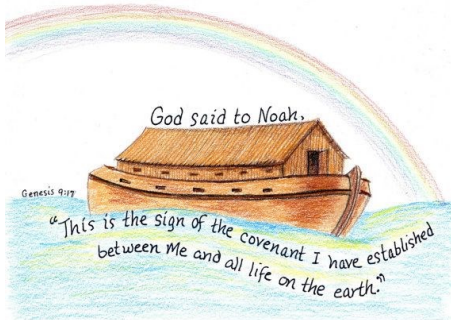 God said to Noah,
Genesis 9:17
"This is the sign of the covenant I have established
between Me and all life on the earth."